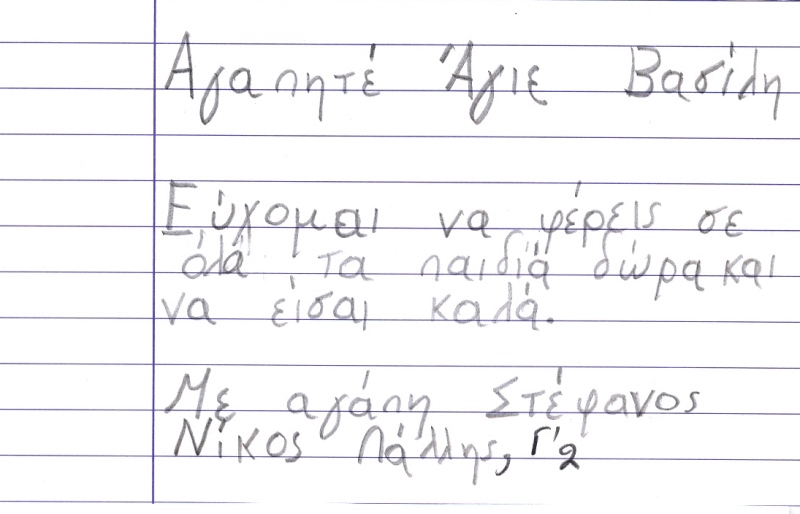 Αγαπητέ Άγιε Βασίλη
Εύχομαι να φέρεις σε
όλα τα παιδιά δώρα και
να είσαι καλά.
Με αγάπη Στέφανος
Νίκος Πάλλης, Γ'2